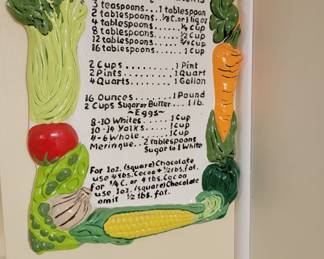 3 teaspoons...1 tablespoon
2 tablespoons..⅛ C. or 1 liq oz
4 tablespoons.....¼ cup
8 tablespoons.....½ cup
12 tablespoons....¾ cup
16 tablespoons.....1 cup
2 Cups........1 Pint
2 Pints.......1 Quart
4 Quarts......1 Gallon
16 Ounces.....1 Pound
2 Cups Sugar or Butter...1 lb.
~Eggs~
8-10 Whites....1 Cup
10-14 Yolks.....1 Cup
4-6 Whole.....1 Cup
Meringue..2 tablespoons
Sugar to 1 White
For 1oz. (square) Chocolate
use 4 tbls. Cocoa + ½ tbls. fat.
for ¼ C. or 4 tbls. Cocoa
use 1oz. (square) Chocolate
omit ½ tbls. fat.